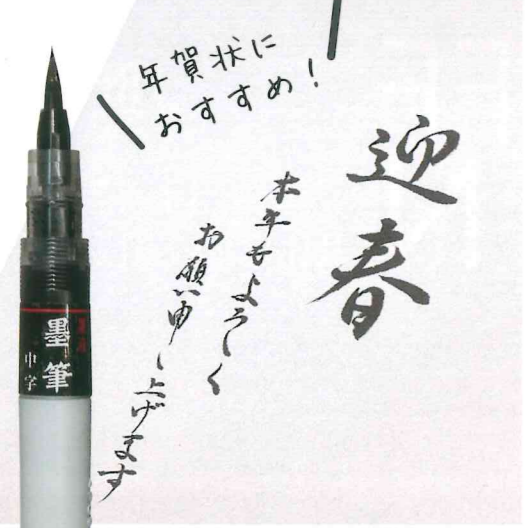 年賀状に
おすすめ!
迎春
本年もよろしく
お願い申し上げます
墨筆
中字